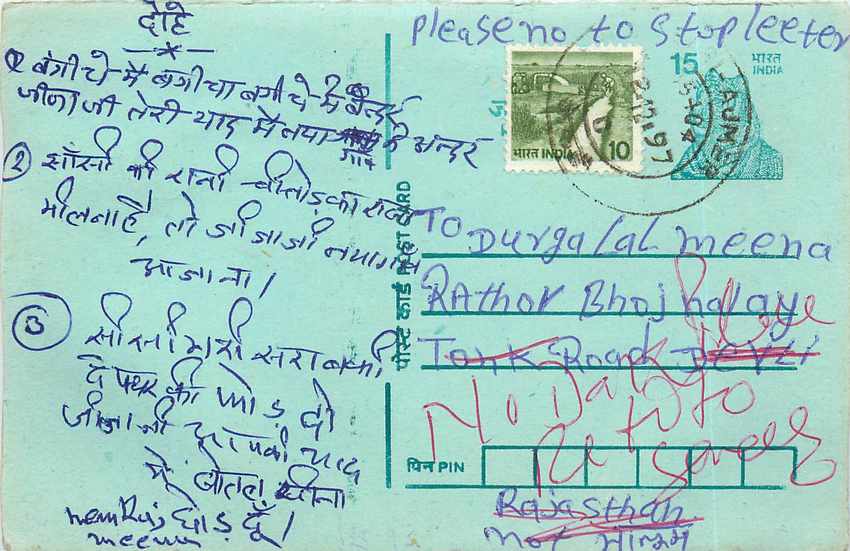 दोहे
① बगीचे मे बगीचा बगीचे मे बन्दर
जीजा जी तेरी याद मे नया गाव के अन्दर
② झाँसी की रानी चीतोड़ का राजा
मीलना है, तो जीजाजी नयागाव
आजाना।
③ सीसी भरी सराब की
दे पथर की फोड़ दो
जीजाजी आपकी याद
मे बोतल पीना
छोड़ दूँ।
nemRaj
meena
please no to stop leeter
15 भारत
INDIA
भारत INDIA 10
AJMER
पोस्ट कार्ड POST CARD
To Durgalal meena
Rathor Bhojnalaye
Tonk Road Devli
पिन PIN
Rajasthan
not मालूम
No
Re to
sender